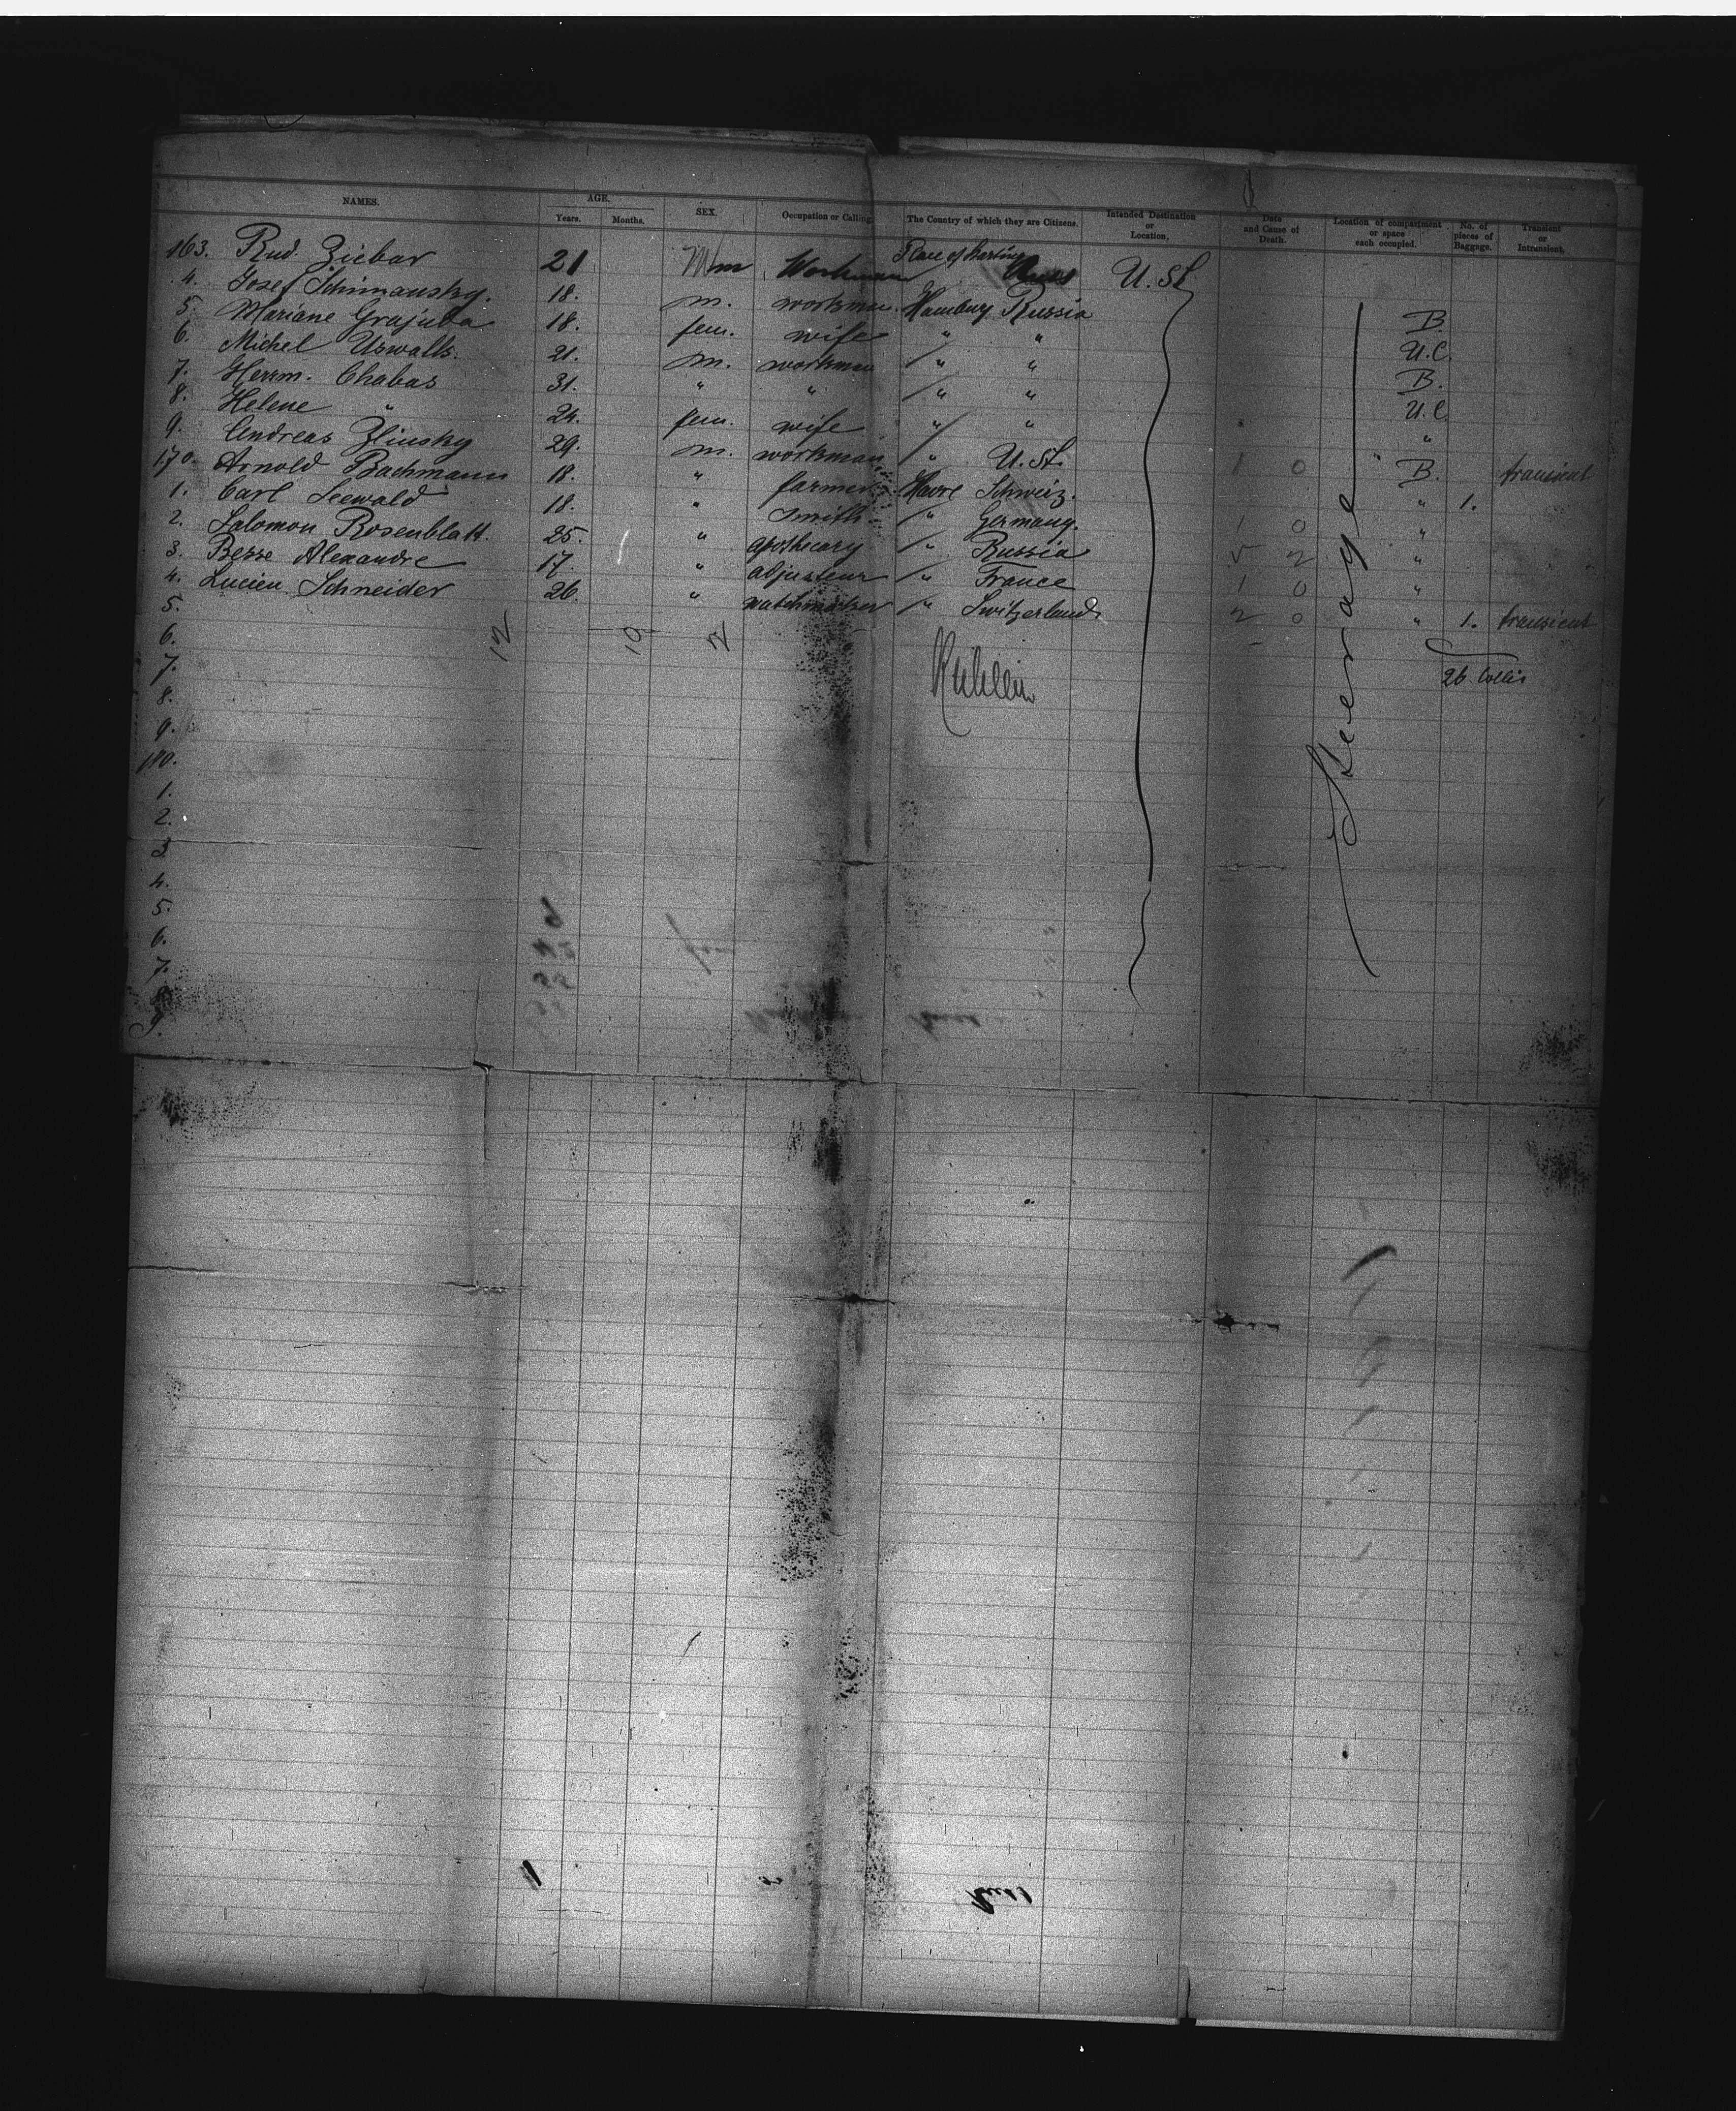 NAMES. AGE. Years. Months. SEX. Occupation or Calling. The Country of which they are Citizens. Intended Destination or Location. Date and Cause of Death. Location of compartment or space each occupied. No. of pieces of Baggage. Transient or Intransient.
Place of Starting
163. Rud. Ziebar 21 m Workman U. St.
4. Josef Schimansky. 18. m. workman Hamburg Russia B.
5. Mariane Grajuba 18. fem. wife " " U.C.
6. Michel Uswalls. 21. m. workman " " B.
7. Herrm. Chabas 31. " " " " U.C.
8. Helene " 24. fem. wife " " "
9. Andreas Zlinsky 29. m. workman " U. St. 1 0 " B. transient
170. Arnold Bachmann 18. " farmer Havre Schweiz. " 1.
1. Carl Seewald 18. " smith " Germany. 1 0 "
2. Salomon Rosenblatt. 25. " apothecary " Russia 5 2 "
3. Besse Alexandre 17. " adjusteur " France 1 0 "
4. Lucien Schneider 26. " watchmaker " Switzerland 2 0 " 1. transient
5.
6. 12 10 2
7. 26 Collis
8.
9.
180.
1.
2.
3.
4.
5.
6.
7.
8.
9.
Steerage